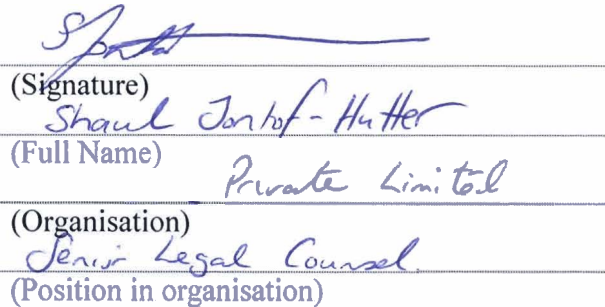 (Signature)
Shaul Jontof-Hutter
(Full Name)
Private Limited
(Organisation)
Senior Legal Counsel
(Position in organisation)